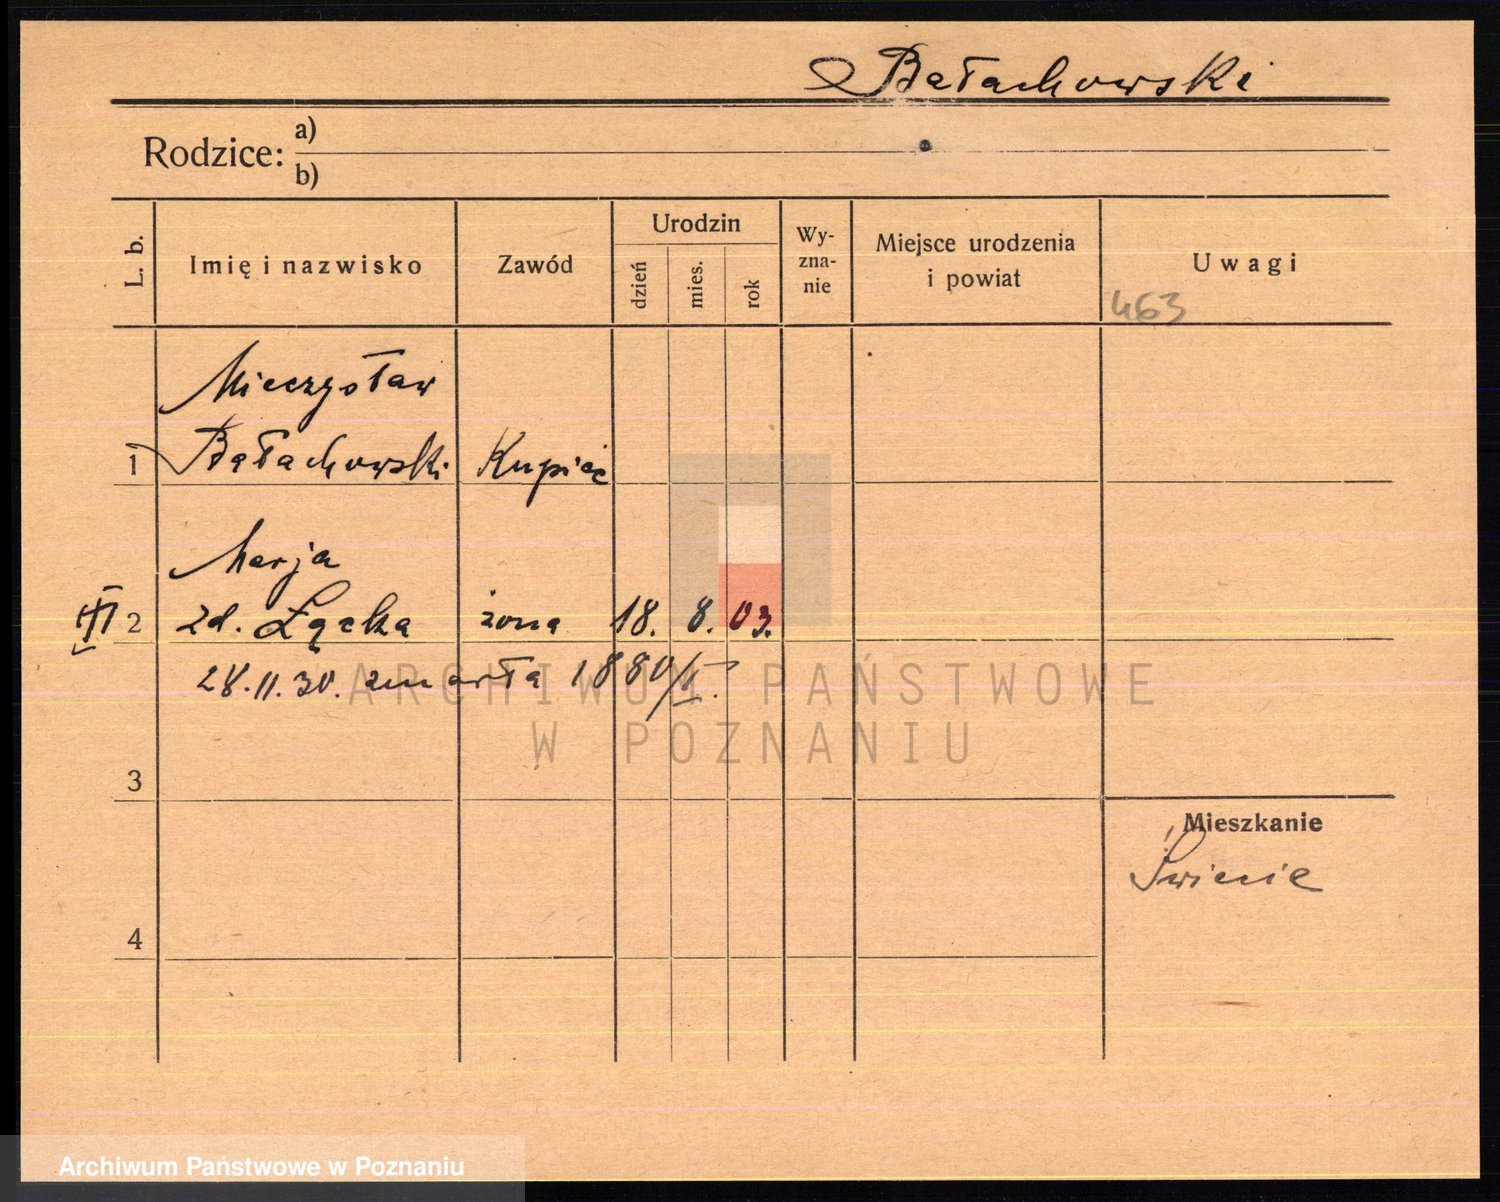 Bałachowski
Rodzice: a)
b)
L. b.
Imię i nazwisko
Zawód
Urodzin
dzień
mies.
rok
Wy-
zna-
nie
Miejsce urodzenia
i powiat
Uwagi
463
Mieczysław
1 Bałachowski Kupiec
Marja
2 zd. Łącka żona 18. 8. 03.
28.11.30. zmarła 1880/
3
4
Mieszkanie
Świecie
ARCHIWUM PAŃSTWOWE
W POZNANIU
Archiwum Państwowe w Poznaniu